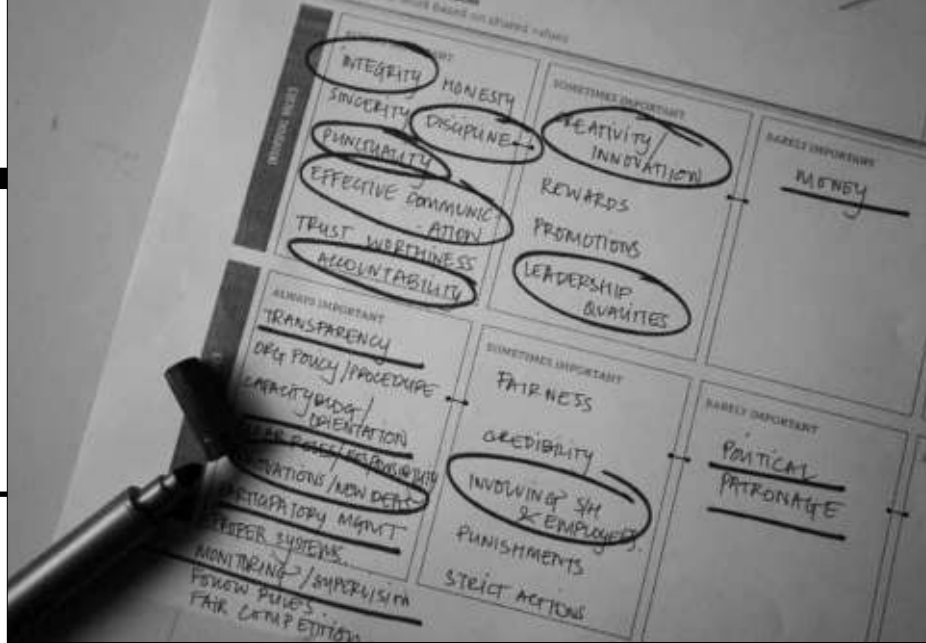 based on shared values
INTEGRITY HONESTY
SINCERITY
DISCIPLINE
PUNCTUALITY
EFFECTIVE COMMUNIC-
ATION
TRUST WORTHINESS
ACCOUNTABILITY
SOMETIMES IMPORTANT
INNOVATION
REWARDS
PROMOTIONS
LEADERSHIP
QUALITIES
RARELY IMPORTANT
MONEY
ALWAYS IMPORTANT
TRANSPARENCY
ORG POLICY/PROCEDURE
ORIENTATION
PARTICIPATORY MGMT
PROPER SYSTEMS
MONITORING/SUPERVISION
FOLLOW RULES.
FAIR COMPETITION
SOMETIMES IMPORTANT
FAIRNESS
CREDIBILITY
INVOLVING S/H
& EMPLOYEES.
PUNISHMENTS
STRICT ACTIONS
RARELY IMPORTANT
POLITICAL
PATRONAGE